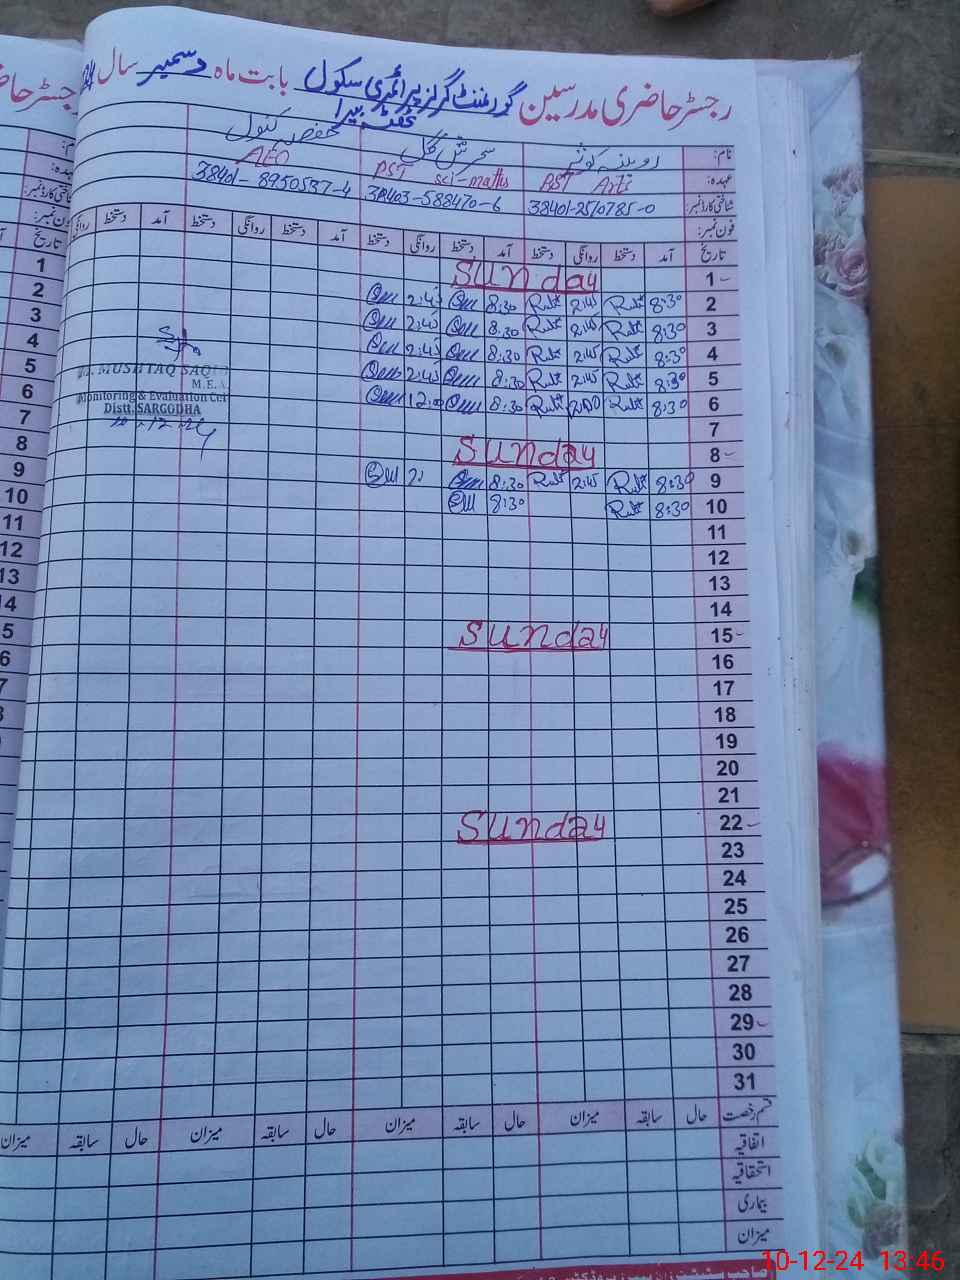 رجسٹر حاضری مدرسین گورنمنٹ گرلز پرائمری سکول بابت ماہ دسمبر سال 24
نام: روبینہ کوثر سحرش گل حفصہ کنول
عہدہ: PST Arts PST Sci-maths AEO
شناختی کارڈ نمبر: 38401-2510785-0 38403-588470-6 38401-8950537-4
فون نمبر:
تاریخ آمد دستخط روانگی دستخط آمد دستخط روانگی دستخط آمد دستخط روانگی دستخط آمد دستخط روانگی
1 Sunday
2 8:30 2:45 8:30 2:45
3 8:30 2:45 8:30 2:45
4 8:30 2:45 8:30 2:45
5 8:30 2:45 8:30 2:45
6 8:30 8:30 12:00
7
8 Sunday
9 8:30 2:45 8:30
10 8:30 8:30
MUSHTAQ SAQI
M.E.A.
Monitoring & Evaluation Cel
Distt. SARGODHA
10-12-24
11
12
13
14
15 Sunday
16
17
18
19
20
21
22 Sunday
23
24
25
26
27
28
29
30
31
قسم رخصت حال سابقہ میزان حال سابقہ میزان حال سابقہ میزان حال سابقہ میزان
اتفاقیہ
استحقاقیہ
بیماری
میزان
10-12-24 13:46